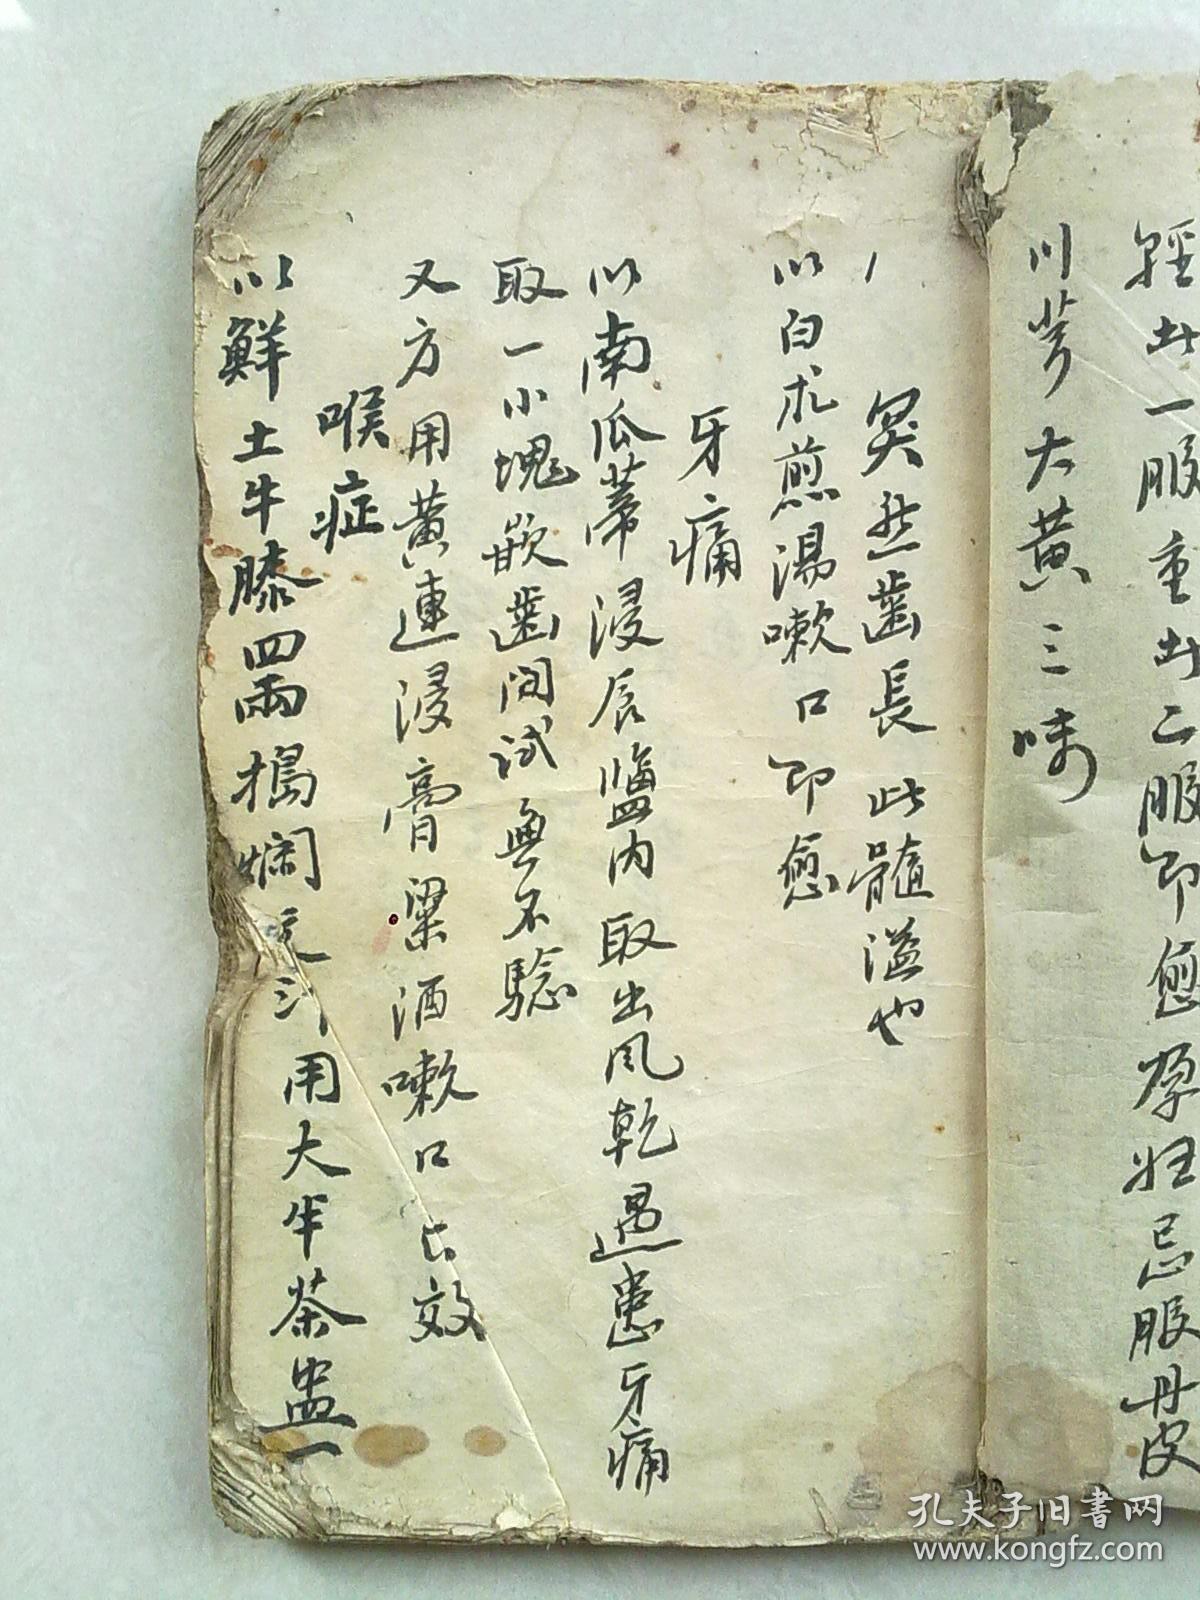 輕此一服重此二服即愈孕妊忌服丹皮
川芎大黄三味
突然齒長 此髓溢也
以白朮煎湯嗽口即愈
牙痛
以南瓜蒂浸唇鹽内取出風乾遇患牙痛
取一小塊嵌齒間試無不驗
又方用黄連浸膏粱酒嗽口亡效
喉症
以鮮土牛膝四兩搗爛 汁用大半茶盅一
孔夫子旧书网
www.kongfz.com